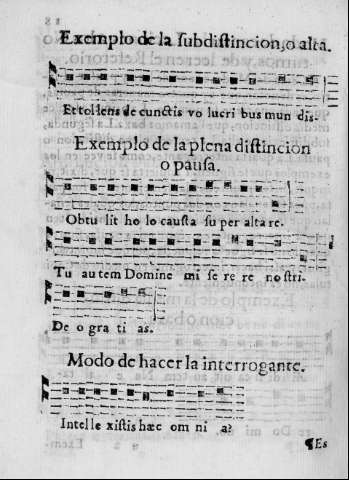 Exemplo de la subdistincion, o alta.
Et tol lens de cunctis vo lucri bus mun dis.
Exemplo de la plena distincion
o pausa.
Obtu lit ho lo causta su per alta re.
Tu au tem Domine mi se re re no stri.
De o gra ti as.
Modo de hacer la interrogante.
Intel le xistis hæc om ni a?
¶Es